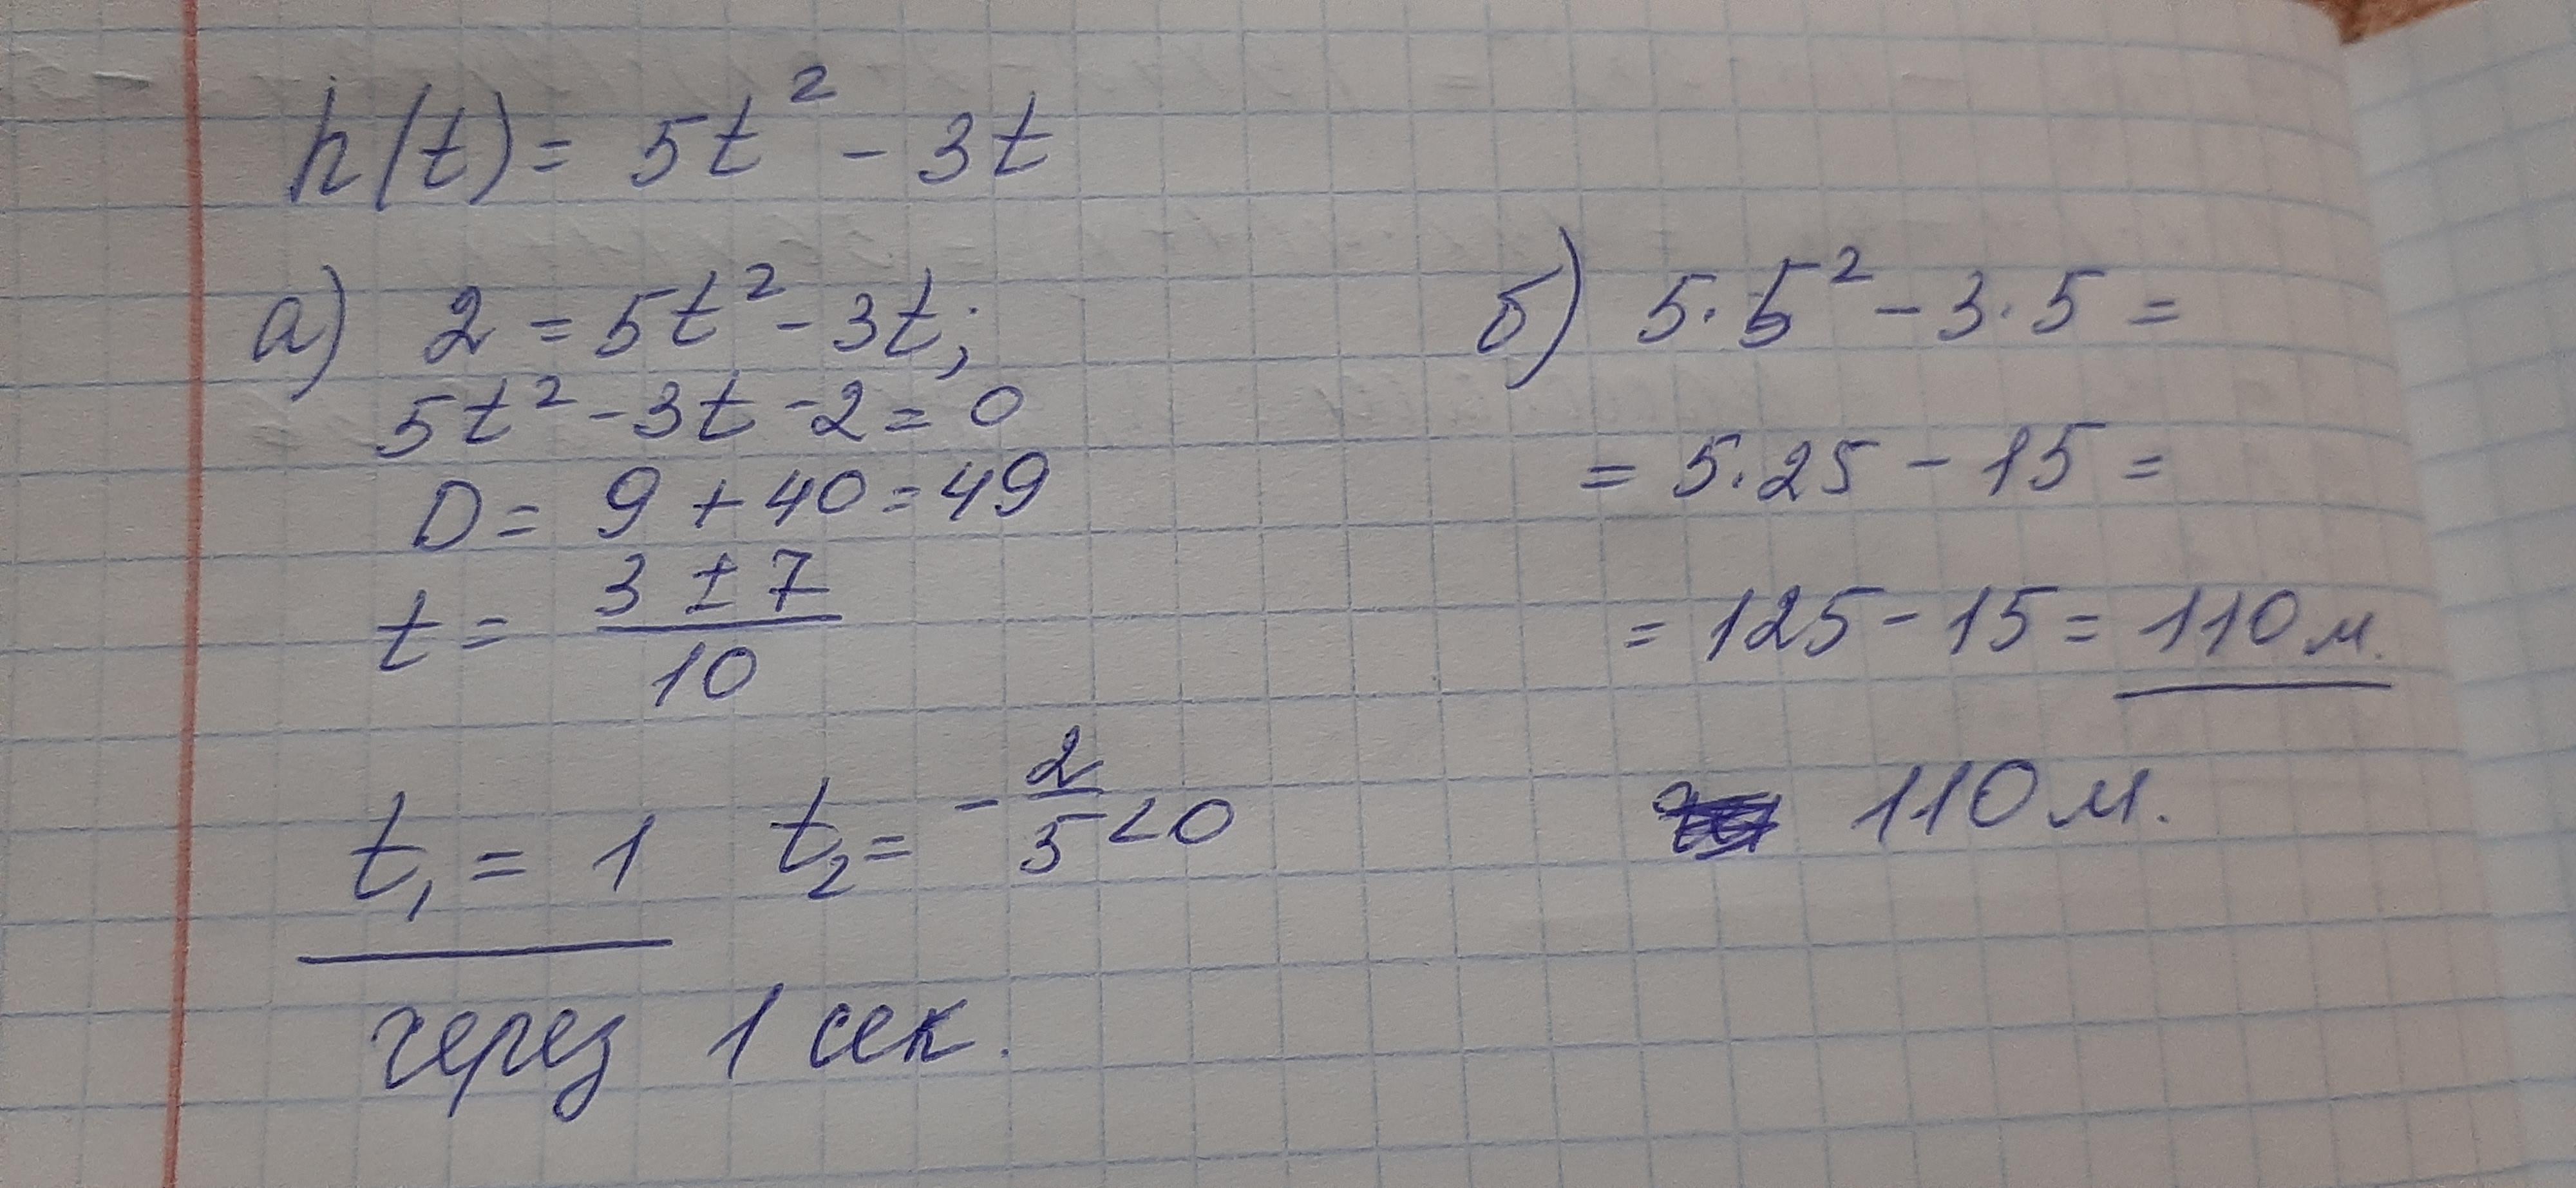 h(t) = 5t² - 3t
а) 2 = 5t² - 3t;
5t² - 3t - 2 = 0
D = 9 + 40 = 49
t = (3 ± 7)/10
t₁ = 1 t₂ = -2/5 < 0
через 1 сек.
б) 5·5² - 3·5 =
= 5·25 - 15 =
= 125 - 15 = 110 м.
110 м.